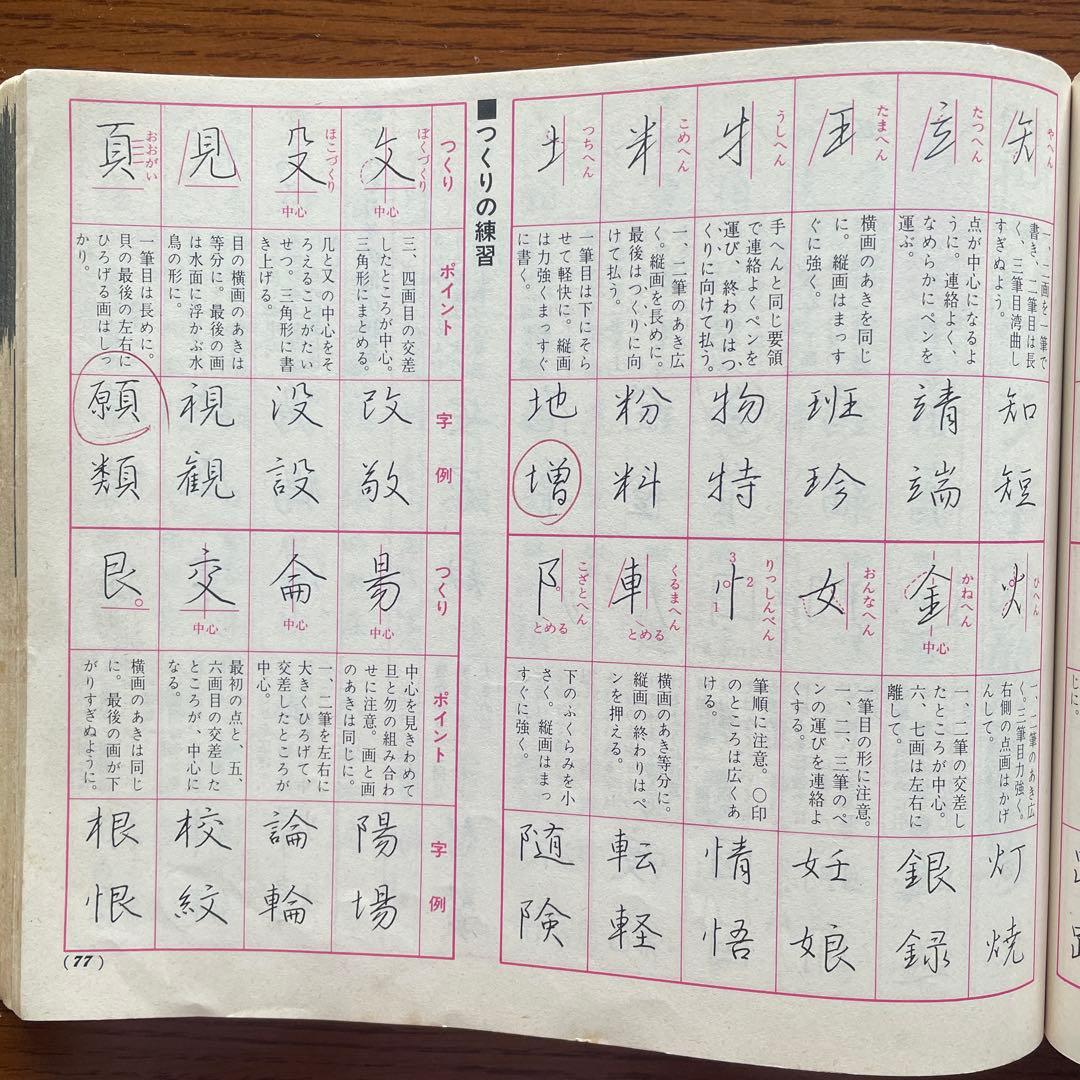 矢
やへん
一、二画を一筆で
書き、二筆目は長
く、三筆目湾曲し
すぎぬよう。
知
短
立
たつへん
点が中心になるよ
うに。連絡よく、
なめらかにペンを
運ぶ。
靖
端
王
たまへん
横画のあきを同じ
に。縦画はまっす
ぐに強く。
班
珍
牛
うしへん
手へんと同じ要領
で連絡よくペンを
運び、終わりはつ
くりに向けて払う。
物
特
米
こめへん
一、二筆のあき広
く。縦画を長めに。
最後はつくりに向
けて払う。
粉
料
土
つちへん
一筆目は下にそら
せて軽快に。縦画
は力強くまっすぐ
に書く。
地
増
火
ひへん
一、二筆のあき広
く。三筆目力強く。
右側の点画はかげ
んして。
灯
焼
金
かねへん
中心
一、二筆の交差し
たところが中心。
六、七画は左右に
離して。
銀
録
女
おんなへん
一筆目の形に注意。
一、二、三筆のペ
ンの運びを連絡よ
くする。
妊
娘
忄
りっしんべん
3
2
1
筆順に注意。〇印
のところは広くあ
ける。
情
悟
車
くるまへん
とめる
横画のあき等分に。
縦画の終わりはペ
ンを押える。
転
軽
阝
こざとへん
とめる
下のふくらみを小
さく。縦画はまっ
すぐに強く。
随
険
■つくりの練習
つくり
ポイント
字例
攵
ぼくづくり
中心
三、四画目の交差
したところが中心。
三角形にまとめる。
改
敬
殳
ほこづくり
中心
几と又の中心をそ
ろえることがたい
せつ。三角形に書
き上げる。
没
設
見
目の横画のあきは
等分に。最後の画
は水面に浮かぶ水
鳥の形に。
視
観
頁
おおがい
一筆目は長めに。
貝の最後の左右に
ひろげる画はしっ
かり。
願
類
つくり
ポイント
字例
昜
中心
中心を見きわめて
旦と勿の組み合わ
せに注意。画と画
のあきは同じに。
陽
場
侖
中心
一、二筆を左右に
大きくひろげて、
交差したところが
中心。
論
輪
交
中心
最初の点と、五、
六画目の交差した
ところが、中心に
なる。
校
紋
艮
横画のあきは同じ
に。最後の画が下
がりすぎぬように。
根
恨
(77)
じに。